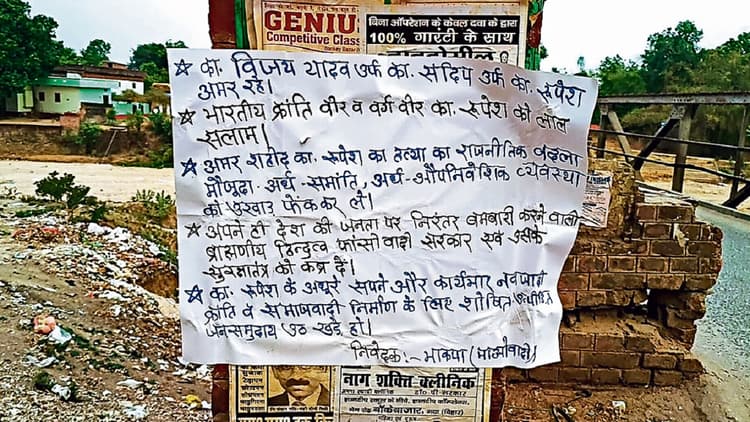 GENIUS
Competitive Class
बिना ऑपरेशन के केवल दवा के द्वारा
100% गारंटी के साथ
☆ का. विजय यादव उर्फ का. संदिप उर्फ का. रूपेश
अमर रहे।
☆ भारतीय क्रांति वीर व वर्ग वीर का. रूपेश को लाल
सलाम।
☆ अमर शहीद का. रूपेश का हत्या का राजनीतिक बदला
मौजूदा अर्ध-सामंति, अर्ध-औपनिवेशिक व्यवस्था
को उखाड़ फेंक कर लें।
☆ अपने ही देश की जनता पर निरंतर बमबारी करने वाली
ब्राह्मणीय हिन्दुत्व फांसीवादी सरकार एवं उसके
सुरक्षातंत्र को कब्र दें।
☆ का. रूपेश के अधूरे सपने और कार्यभार नवजनवादी
क्रांति व समाजवादी निर्माण के लिए शोषित उत्पीड़ित
जनसमुदाय उठ खड़े हो।
निवेदक:- भाकपा (माओवादी)
नाग शक्ति क्लीनिक
बाँकेबाजार, गया (बिहार)